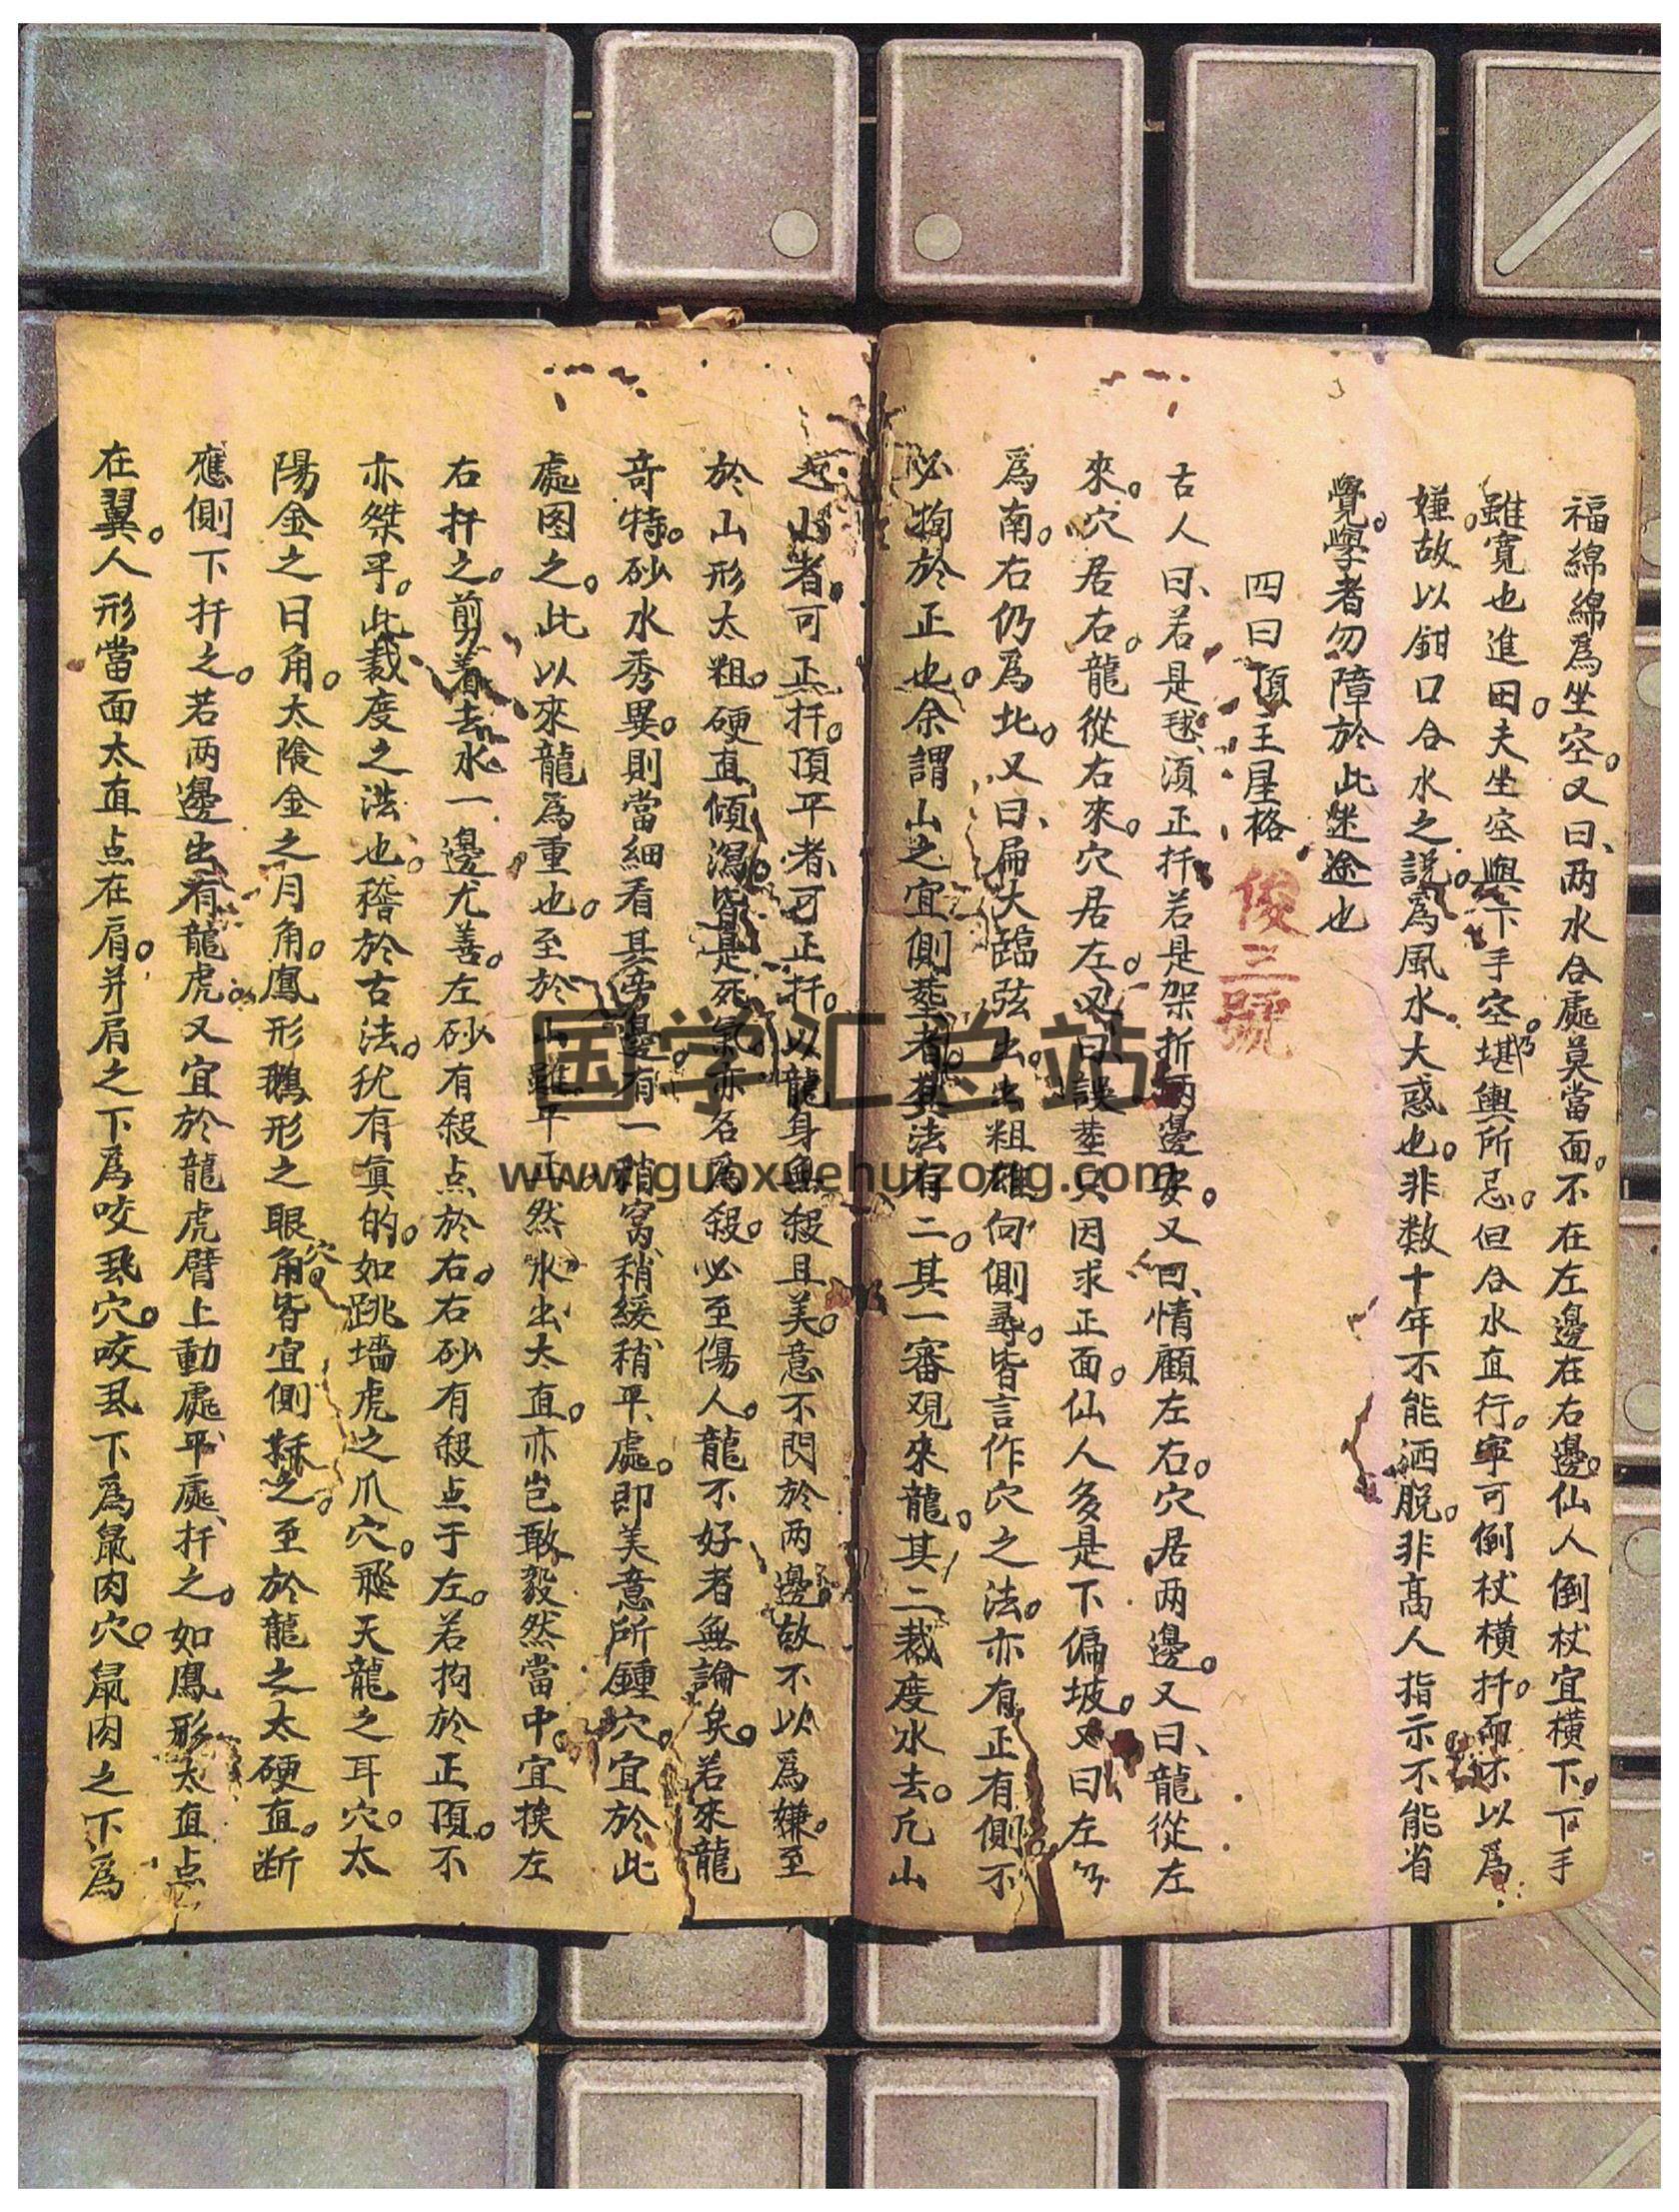 福綿綿爲坐空。又曰、两水合處莫當面。不在左邊在右邊。仙人倒杖宜橫下。下手
雖寬也進田。夫坐空與下手空。乃堪輿所忌。但合水直行。寧可倒杖橫扦。而不以爲
嫌。故以鉗口合水之説。爲風水大惑也。非数十年不能洒脱。非高人指示不能省
覺。學者勿障於此迷途也
四曰頂主星格
俊三號
古人曰、若是毬、須正扦若是架折两邊安。又曰、情顧左右。穴居两邊。又曰、龍從左
來。穴居右。龍從右來。穴居左。又曰誤塟只因求正面。仙人多是下偏坡。又曰左仍
爲南。右仍爲北。又曰、扁大臨弦出。出粗雄向側尋。皆言作穴之法。亦有正有側不
必拘於正也。余謂山之宜側塟者。其法有二。其一審观來龍。其二裁度水去。凡山
山者。可正扦。頂平者、可正扦。以龍身無殺且美。意不閃於两邊故不以爲嫌。至
於山形太粗。硬直傾瀉皆是死氣。亦名爲殺。必至傷人。龍不好者無論矣。若來龍
奇特。砂水秀異。則當細看其旁邊。有一稍窝、稍緩、稍平、處。即美意所鍾。穴宜於此
處图之。此以來龍爲重也。至於山雖平正。然水出太直。亦岂敢毅然當中。宜挨左
右扦之。剪着去水一邊尤善。左砂有殺点於右。右砂有殺点于左。若拘於正頂。不
亦桀乎。此裁度之法也。稽於古法。犹有眞的。如跳墻虎之爪穴。飛天龍之耳穴。太
陽金之日角。太陰金之月角。鳳形鵝形之眼角穴皆宜側之。至於龍之太硬直。断
應側下扦之。若两邊出有龍虎。又宜於龍虎臂上動處平處、扦之。如鳳形太直点
在翼。人形當面太直点在肩。并肩之下爲咬虱穴。咬虱下爲鼠肉穴。鼠肉之下爲
国学汇总站
www.guoxuehuizong.com